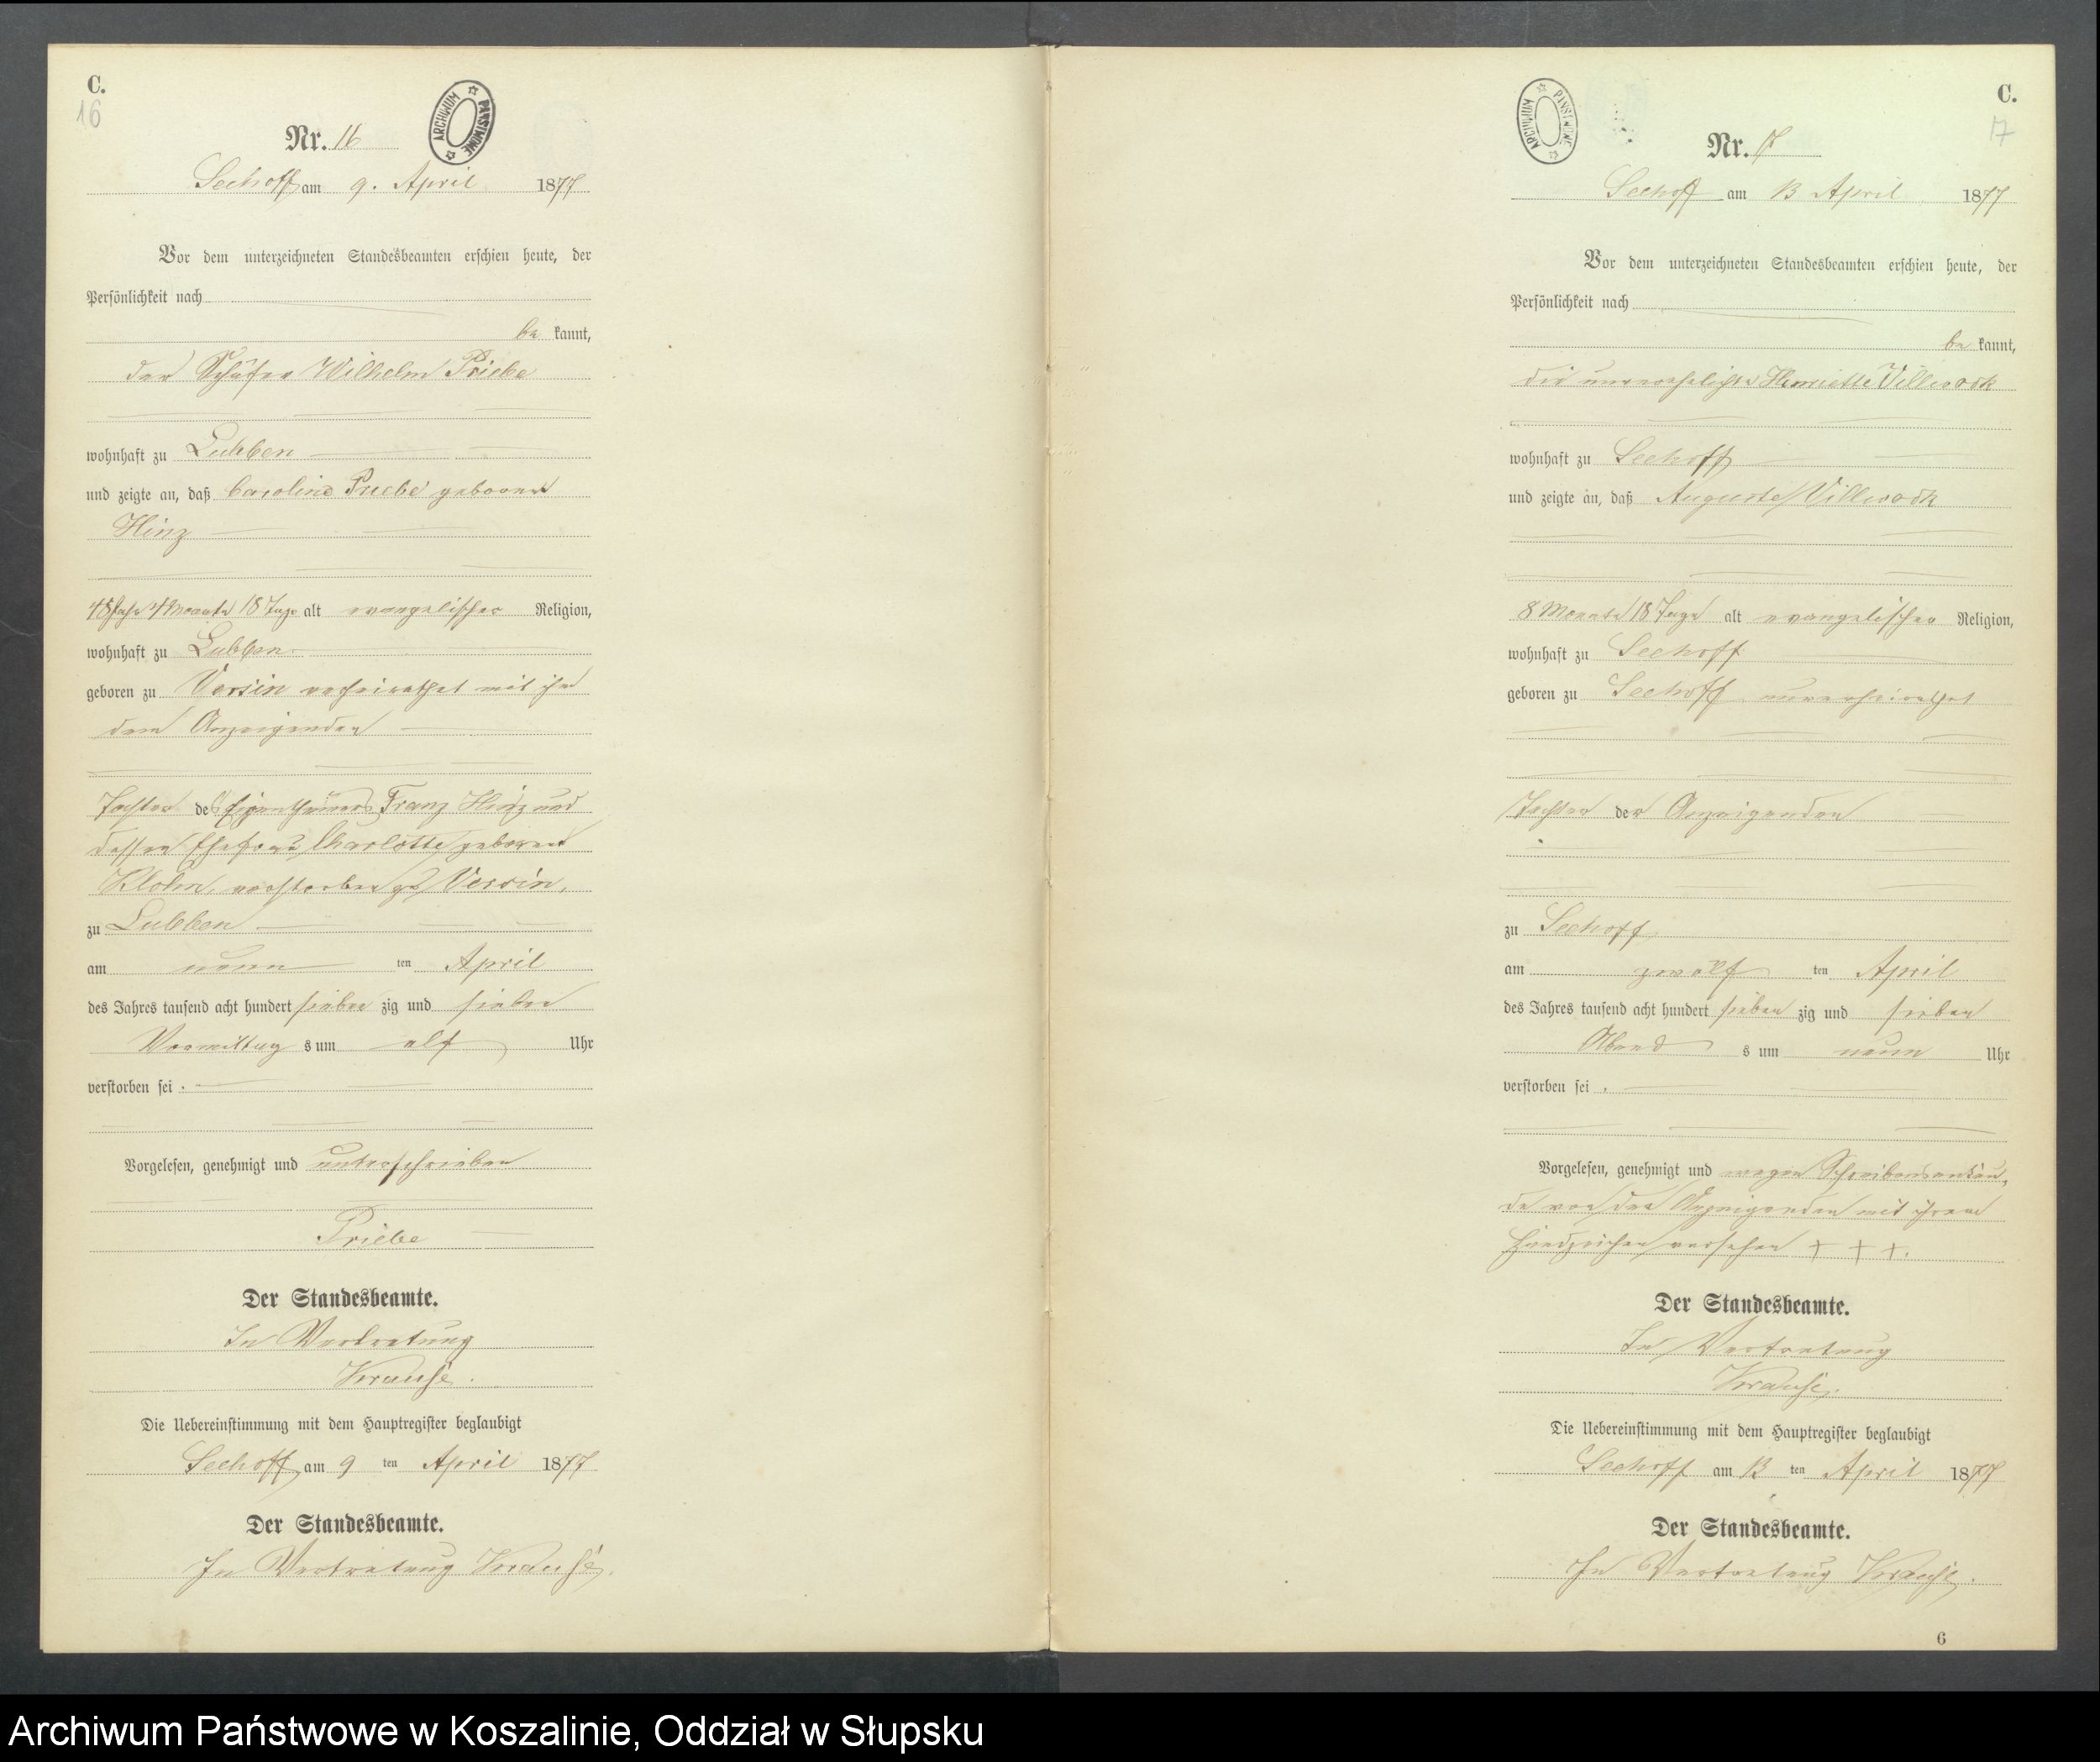 C.
16
Nr. 16
ARCHIWUM PAŃSTWOWE
Seehoff am 9. April 1877
Vor dem unterzeichneten Standesbeamten erschien heute, der
Persönlichkeit nach
be kannt,
der Schäfer Wilhelm Priebe
wohnhaft zu Lubben
und zeigte an, daß Caroline Priebe geborene
Hinz
48 Jahr 4 Monate 18 Tage alt evangelischer Religion,
wohnhaft zu Lubben
geboren zu Versin verheirathet mit ihm
dem Anzeigenden
Tochter des Eigenthümers Franz Hinz und
dessen Ehefrau Charlotte geborene
Klohn, verstorben zu Versin,
zu Lubben
am neun ten April
des Jahres tausend acht hundert sieben zig und sieben
Vormittag s um elf Uhr
verstorben sei.
Vorgelesen, genehmigt und unterschrieben
Priebe
Der Standesbeamte.
In Vertretung
Krause.
Die Uebereinstimmung mit dem Hauptregister beglaubigt
Seehoff am 9 ten April 1877
Der Standesbeamte.
In Vertretung Krause.
C.
17
Nr. 17
ARCHIWUM PAŃSTWOWE
Seehoff am 13 April 1877
Vor dem unterzeichneten Standesbeamten erschien heute, der
Persönlichkeit nach
be kannt,
die unverehelichte Henriette Villwock
wohnhaft zu Seehoff
und zeigte an, daß Auguste Villwock
8 Monate 18 Tage alt evangelischer Religion,
wohnhaft zu Seehoff
geboren zu Seehoff unverheirathet
Tochter der Anzeigenden
zu Seehoff
am zwölf ten April
des Jahres tausend acht hundert sieben zig und sieben
Abend s um neun Uhr
verstorben sei.
Vorgelesen, genehmigt und wegen Schreibensunkun-
de von der Anzeigenden mit ihrem
Handzeichen versehen + + +.
Der Standesbeamte.
In Vertretung
Krause.
Die Uebereinstimmung mit dem Hauptregister beglaubigt
Seehoff am 13 ten April 1877
Der Standesbeamte.
In Vertretung Krause.
6
Archiwum Państwowe w Koszalinie, Oddział w Słupsku